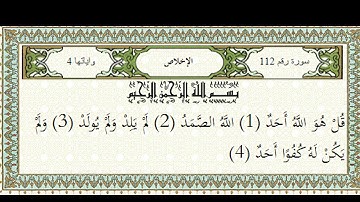 سورة رقم 112 الإخلاص وآياتها 4
بسم الله الرحمن الرحيم
قُلْ هُوَ اللَّهُ أَحَدٌ (1) اللَّهُ الصَّمَدُ (2) لَمْ يَلِدْ وَلَمْ يُولَدْ (3) وَلَمْ
يَكُنْ لَهُ كُفُوًا أَحَدٌ (4)